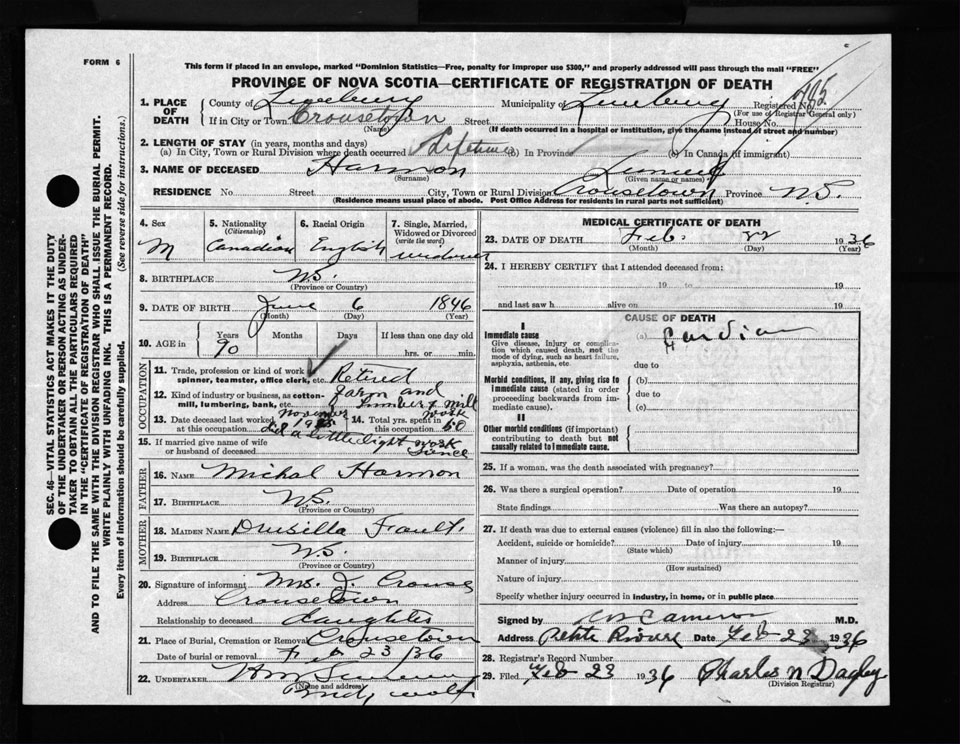 FORM 6
This form if placed in an envelope, marked "Dominion Statistics—Free, penalty for improper use $300," and properly addressed will pass through the mail "FREE"
PROVINCE OF NOVA SCOTIA—CERTIFICATE OF REGISTRATION OF DEATH
1. PLACE OF DEATH
County of Lunenburg Municipality of Lunenburg Registered No.
(For use of Registrar General only)
If in City or Town Crousetown Street House No.
(Name) (If death occurred in a hospital or institution, give the name instead of street and number)
2. LENGTH OF STAY (in years, months and days)
(a) In City, Town or Rural Division where death occurred Lifetime (b) In Province (c) In Canada (if immigrant)
3. NAME OF DECEASED Harmon
(Surname) (Given name or names)
RESIDENCE No. Street City, Town or Rural Division Crousetown Province N.S.
(Residence means usual place of abode. Post Office Address for residents in rural parts not sufficient)
4. Sex M
5. Nationality (Citizenship) Canadian
6. Racial Origin English
7. Single, Married, Widowed or Divorced (write the word) widower
8. BIRTHPLACE N.S.
(Province or Country)
9. DATE OF BIRTH June 6 1846
(Month) (Day) (Year)
10. AGE in Years Months Days If less than one day old
90 hrs. or min.
OCCUPATION
11. Trade, profession or kind of work as spinner, teamster, office clerk, etc. Retired
12. Kind of industry or business, as cotton-mill, lumbering, bank, etc. farm and Lumber & mill work
13. Date deceased last worked at this occupation November
14. Total yrs. spent in this occupation 60
did a little light work since
15. If married give name of wife or husband of deceased
FATHER
16. NAME Michal Harmon
17. BIRTHPLACE N.S.
(Province or Country)
MOTHER
18. MAIDEN NAME Drusilla Fault
19. BIRTHPLACE N.S.
(Province or Country)
20. Signature of informant Mrs. J. Crouse
Address Crousetown
Relationship to deceased daughter
21. Place of Burial, Cremation or Removal Crousetown
Date of burial or removal Feb 23/36
22. UNDERTAKER
(Name and address)
MEDICAL CERTIFICATE OF DEATH
23. DATE OF DEATH Feb. 22 1936
(Month) (Day) (Year)
24. I HEREBY CERTIFY that I attended deceased from:
19 to 19
and last saw h alive on 19
CAUSE OF DEATH
I
Immediate cause
Give disease, injury or complication which caused death, not the mode of dying, such as heart failure, asphyxia, asthenia, etc.
(a)
due to
Morbid conditions, if any, giving rise to immediate cause (stated in order proceeding backwards from immediate cause).
(b)
due to
(c)
II
Other morbid conditions (if important) contributing to death but not causally related to immediate cause.
25. If a woman, was the death associated with pregnancy?
26. Was there a surgical operation? Date of operation 19
State findings Was there an autopsy?
27. If death was due to external causes (violence) fill in also the following:—
Accident, suicide or homicide? Date of injury 19
(State which)
Manner of injury
(How sustained)
Nature of injury
Specify whether injury occurred in industry, in home, or in public place
Signed by M.D.
Address Petite Riviere Date Feb 23 1936
28. Registrar's Record Number
29. Filed Feb 23 1936 Charles N Dagley
(Division Registrar)
SEC. 46—VITAL STATISTICS ACT MAKES IT THE DUTY
OF THE UNDERTAKER OR PERSON ACTING AS UNDER-
TAKER TO OBTAIN ALL THE PARTICULARS REQUIRED
IN THE "CERTIFICATE OF REGISTRATION OF DEATH"
AND TO FILE THE SAME WITH THE DIVISION REGISTRAR WHO SHALL ISSUE THE BURIAL PERMIT.
WRITE PLAINLY WITH UNFADING INK. THIS IS A PERMANENT RECORD.
Every item of information should be carefully supplied. (See reverse side for instructions.)